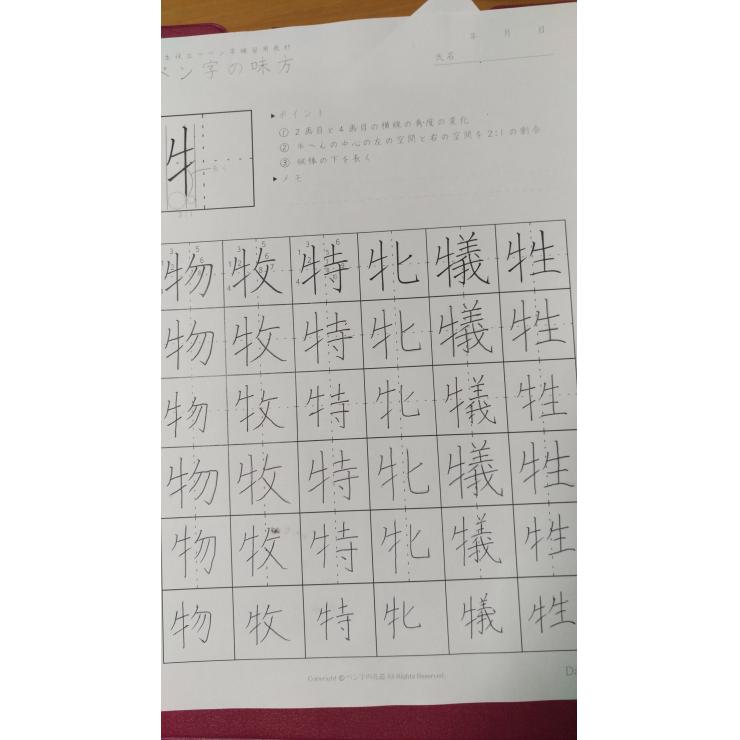 ペン字の味方
年 月 日
氏名
牜
▶ポイント
① 2画目と4画目の横線の角度の変化
② 牛へんの中心の左の空間と右の空間を2:1の割合
③ 縦線の下を長く
▶メモ
長く
2:1
物 牧 特 牝 犠 牲
物 牧 特 牝 犠 牲
物 牧 特 牝 犠 牲
物 牧 特 牝 犠 牲
物 牧 特 牝 犠 牲
物 牧 特 牝 犠 牲
Copyright © ペン字の花道 All Rights Reserved.